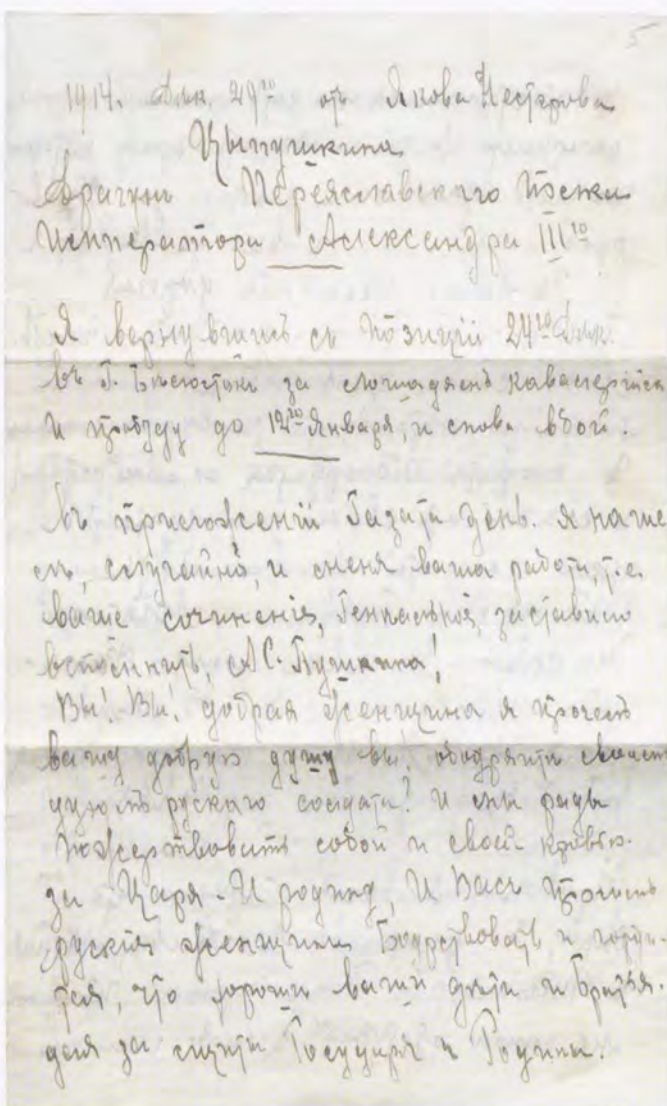 5
1914. Дек. 29го отъ Якова Нестерова
Цыпушкина
Драгунъ Переяславскаго Полка
Императора Александра IIIго
Я вернувшись съ позиций 24го Дек.
въ Г. Белостокъ за лошадями
и пробуду до 12го Января, и снова вбой.
Въ приложений Газата День. я наше
лъ, случайно, и меня ваша работа, т.е.
ваше сочинения, заставило
вспомнить, А.С. Пушкина!
Вы! Вы! добрая женщина я прочелъ
вашу добрую душу вы! ободряити
рускаго солдата? И мы рады
Пожертвовать собой и своей кровью.
за Царя - И родину, И Васъ
руския женщины Бодрствовать и горди-
тся, что ваши дети и Братья.
за Государя и Родины.